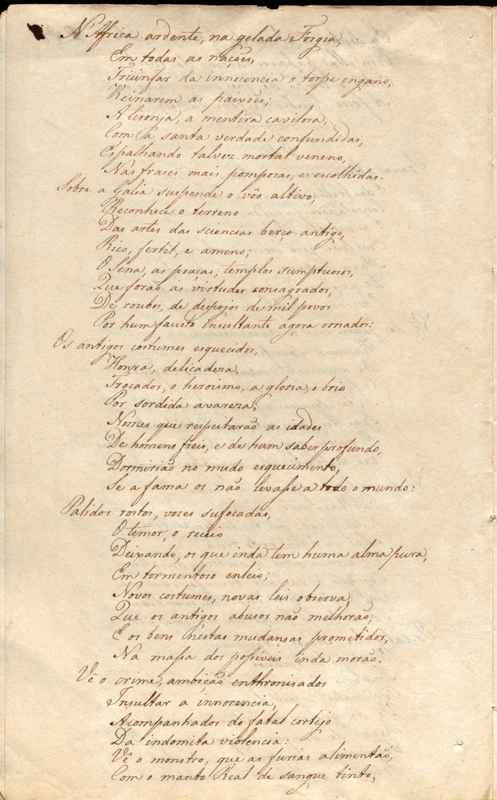 N'Africa ardente, na gelada Frigia,
Em todas as nações,
Triunfar da innocencia o torpe engano,
Reinarem as paixões;
A lizonja, a mentira cavilosa,
Com a santa verdade confundidas,
Espalhando talvez mortal veneno,
Nas frases mais pomposas, e escolhidas.
Sobre a Galia suspende o vôo altivo;
Reconhece o terreno
Das artes das sciencias berço antigo,
Rico, fertil, e ameno;
O Sena, as praças, templos sumptuosos,
Que forão ás virtudes consagrados,
De roubos, de despojos de mil povos
Por hum fausto insultante agora ornados:
Os antigos costumes esquecidos,
Honra, delicadeza,
Trocados, o heroismo, a gloria, o brio
Por sordida avareza;
Nomes que respeitarão as idades
De homens fieis, e de hum saber profundo,
Dormirião no mudo esquecimento,
Se a fama os não levasse a todo o mundo:
Palidos rostos, vozes sufocadas,
O temor, o receio
Deixando, os que inda tem huma alma pura,
Em tormentoso enleio;
Novos costumes, novas leis observa;
Que os antigos abusos não melhorão;
E os bens n'estas mudanças prometidos,
Na massa dos possiveis inda morão.
Vê o crime, ambição enthronisados
Insultar a innocencia,
Acompanhados do fatal cortejo
Da indomita violencia:
Vê o monstro, que as furias alimentão,
Com o manto Real de sangue tinto,